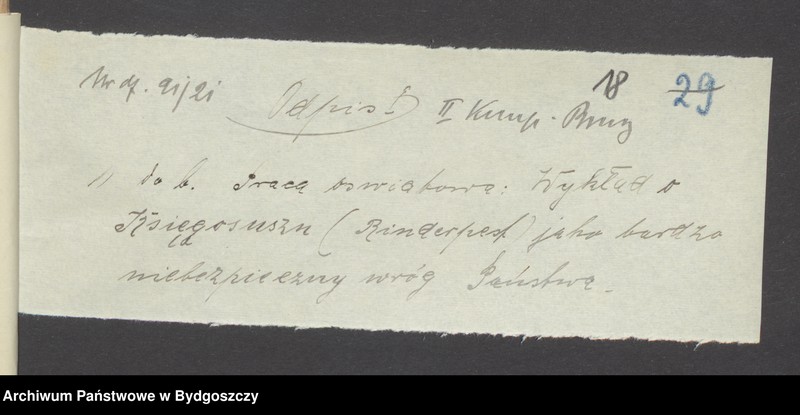 18 29
Nr dz. 91/21 Odpis! II Komp.
1) do b. Praca oswiatowa: Wykład o
Księgosuszu (Rinderpest) jako bardzo
niebezpieczny wróg Państwa.
Archiwum Państwowe w Bydgoszczy